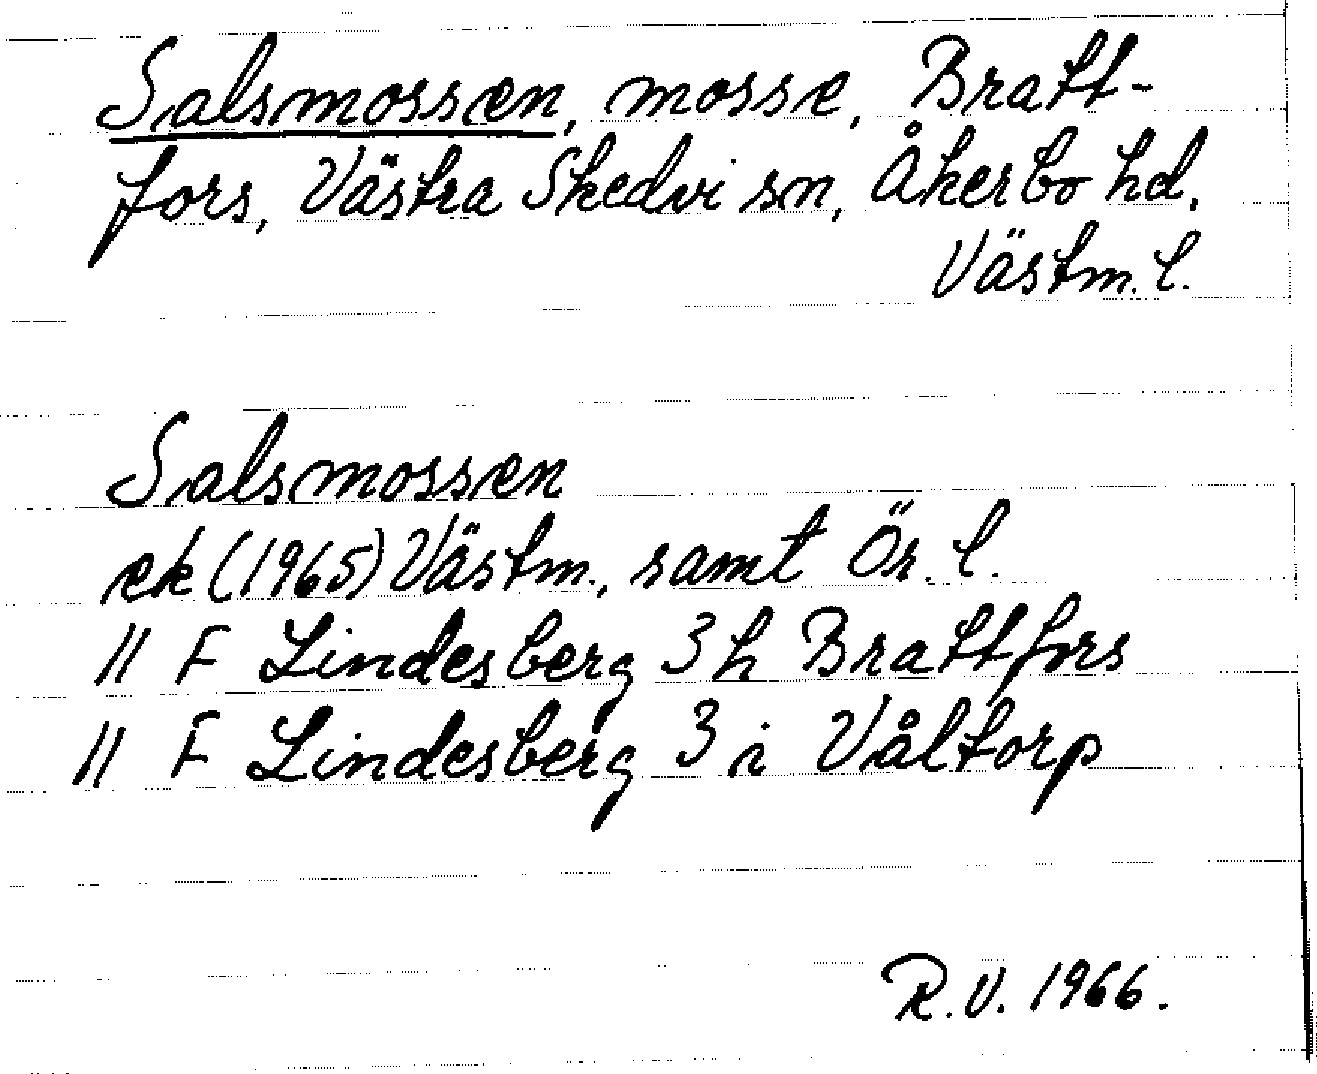 Salsmossen, mosse, Bratt-
fors, Västra Skedvi sn, Åkerbo hd,
Västm. l.
Salsmossen
ek (1965) Västm., samt Ör. l.
11 F Lindesberg 3 h Brattfors
11 F Lindesberg 3 i Våltorp
R.V. 1966.